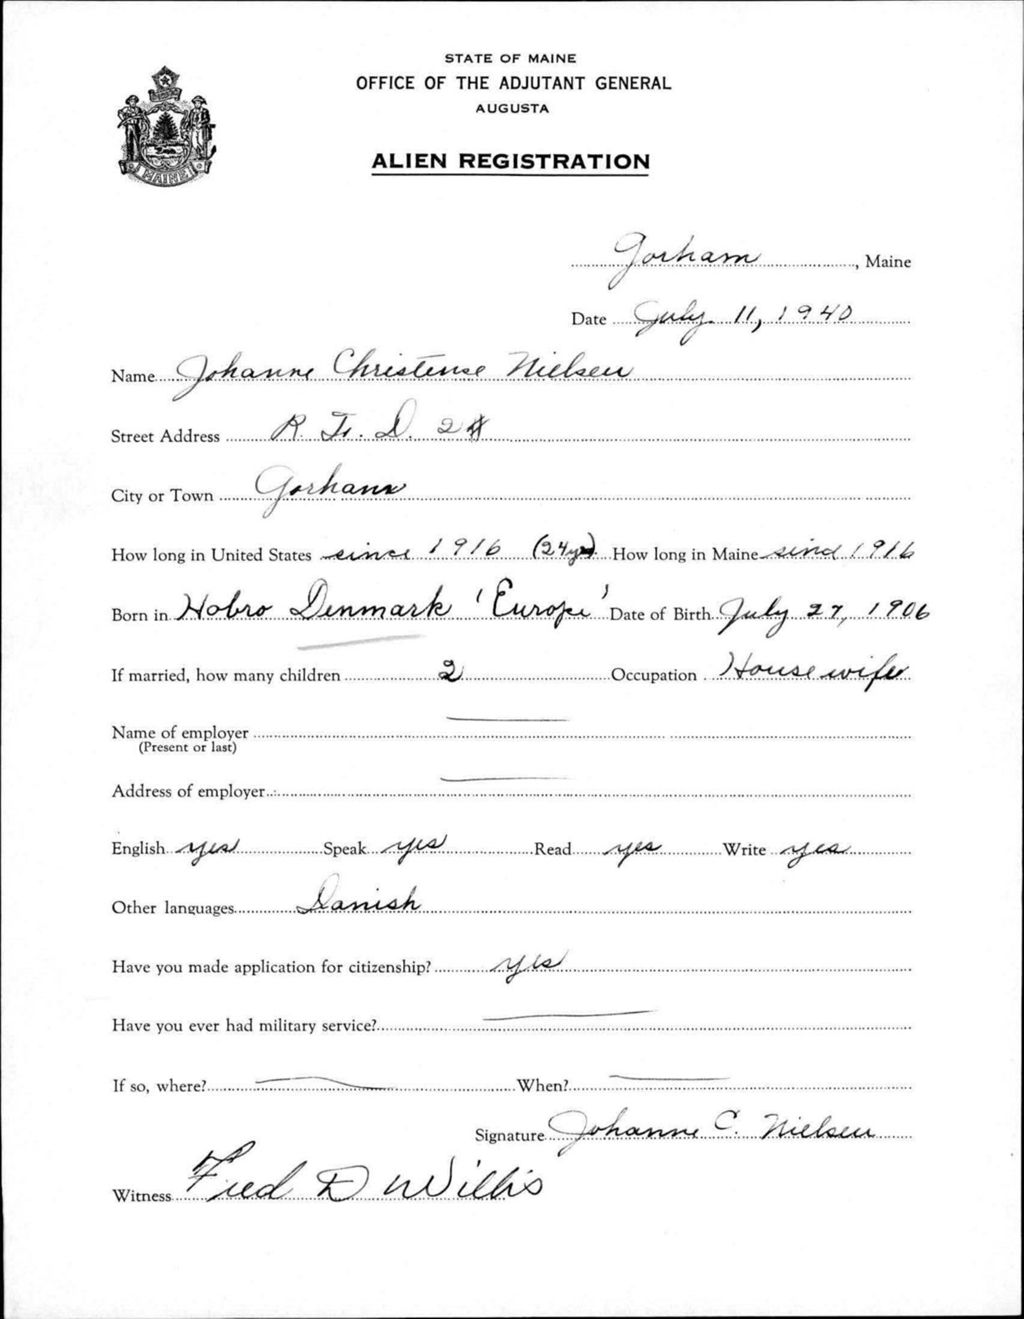 STATE OF MAINE
OFFICE OF THE ADJUTANT GENERAL
AUGUSTA
ALIEN REGISTRATION
MAINE
Gorham, Maine
Date July 11, 1940
Name Johanne Christense Nielsen
Street Address R. F. D. 2
City or Town Gorham
How long in United States since 1916 (24 yrs) How long in Maine sind 1916
Born in Hobro Denmark 'Europe' Date of Birth July 27, 1906
If married, how many children 2 Occupation Housewife
Name of employer
(Present or last)
Address of employer
English yes Speak yes Read yes Write yes
Other languages Danish
Have you made application for citizenship? yes
Have you ever had military service?
If so, where? When?
Signature Johanne C. Nielsen
Witness Fred D Willis